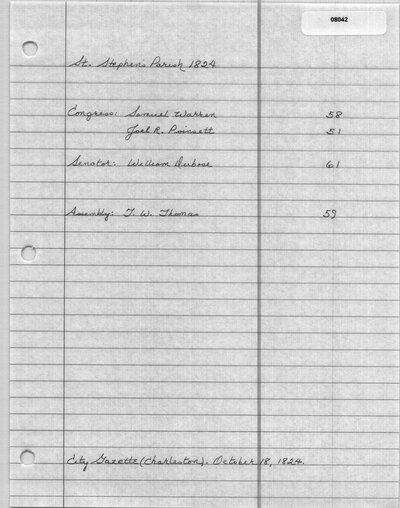 08042
St. Stephens Parish 1824
Congress: Samuel Warren 58
Joel R. Poinsett 51
Senator: William Dubose 61
Assembly: T. W. Thomas 59
City Gazette (Charleston). October 18, 1824.